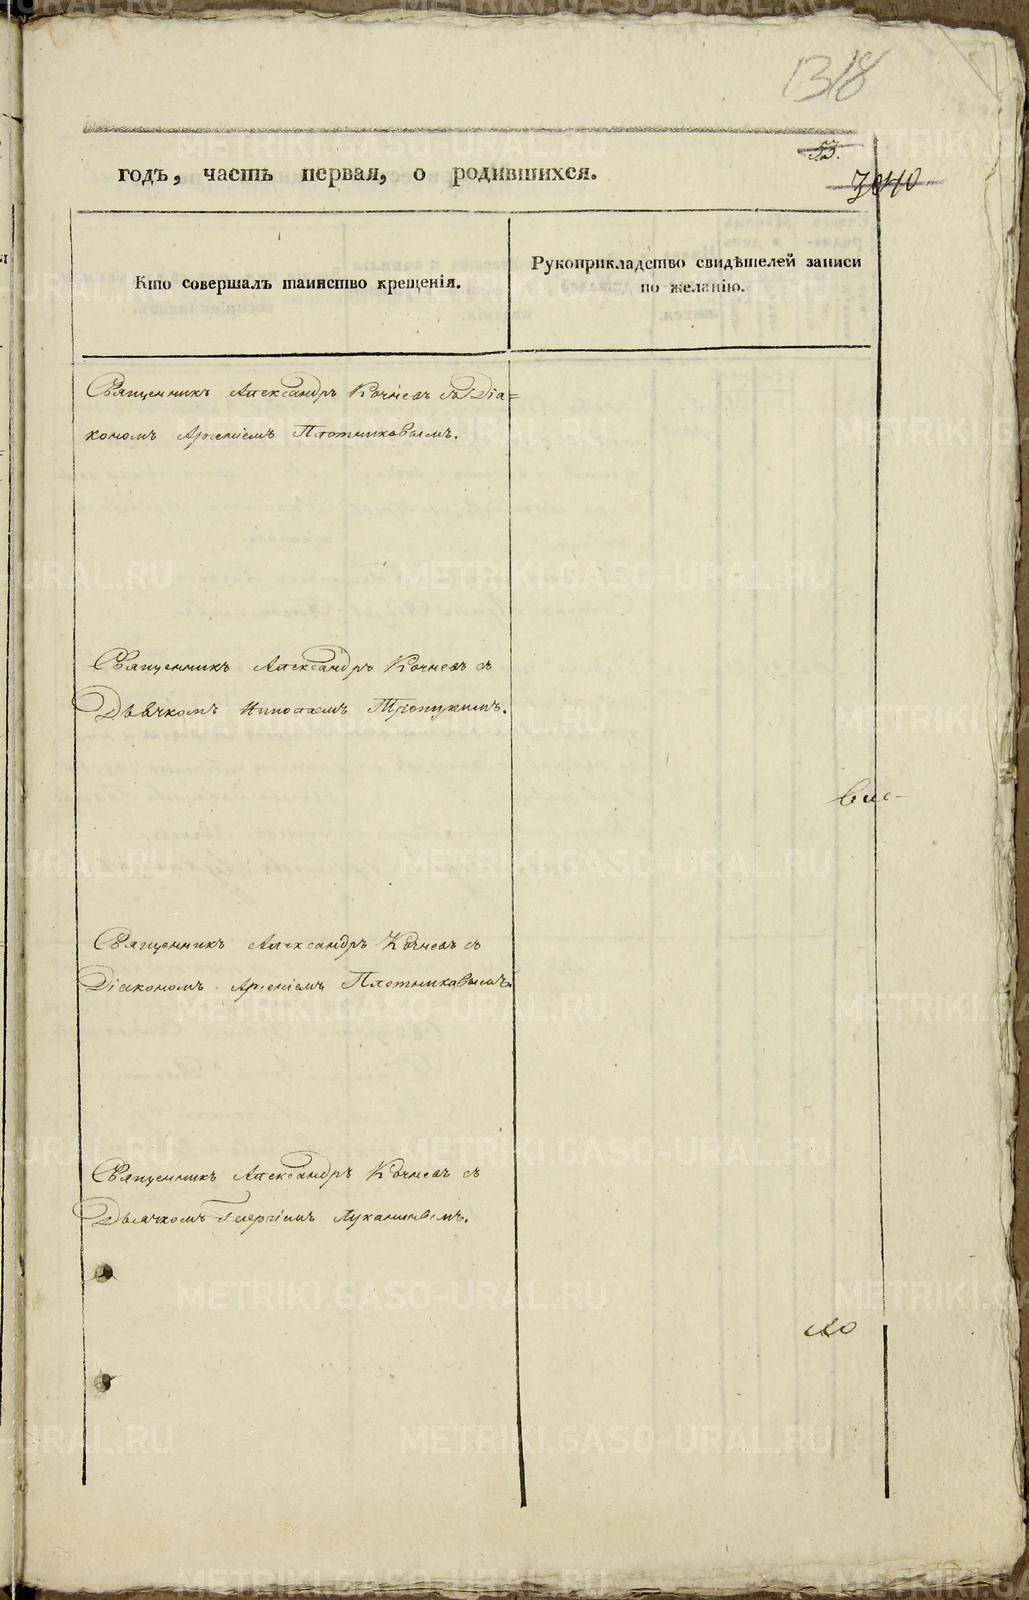 1318
53.
3040
годъ, часть первая, о родившихся.
Кто совершалъ таинство крещенія.
Рукоприкладство свидѣтелей записи
по желанію.
Священникъ Александръ Кочневъ съ Діа=
кономъ Арсеніемъ Плотниковымъ.
Священникъ Александръ Кочневъ съ
Дьячкомъ
Священникъ Александръ Кочневъ съ
Діакономъ Арсеніемъ Плотниковымъ.
Священникъ Александръ Кочневъ съ
Дьячкомъ Георгіемъ Луканинымъ.
METRIKI.GASO-URAL.RU